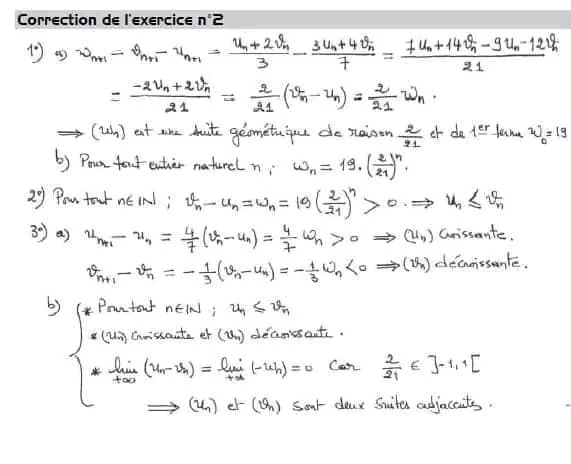 Correction de l'exercice n°2
1°) a) w_{n+1} = v_{n+1} - u_{n+1} = \frac{u_n + 2v_n}{3} - \frac{3u_n + 4v_n}{7} = \frac{7u_n + 14v_n - 9u_n - 12v_n}{21}
= \frac{-2u_n + 2v_n}{21} = \frac{2}{21}(v_n - u_n) = \frac{2}{21} w_n.
⟹ (w_n) est une suite géométrique de raison \frac{2}{21} et de 1er terme w_0 = 19
b) Pour tout entier naturel n ; w_n = 19.(\frac{2}{21})^n.
2°) Pour tout n∈IN ; v_n - u_n = w_n = 19(\frac{2}{21})^n > 0. ⟹ u_n ≤ v_n
3°) a) u_{n+1} - u_n = \frac{4}{7}(v_n - u_n) = \frac{4}{7} w_n > 0 ⟹ (u_n) Croissante.
v_{n+1} - v_n = -\frac{1}{3}(v_n - u_n) = -\frac{1}{3} w_n < 0 ⟹ (v_n) décroissante.
b) * Pour tout n∈IN ; u_n ≤ v_n
* (u_n) Croissante et (v_n) décroissante.
* lim_{+∞} (u_n - v_n) = lim_{+∞} (-w_n) = 0 Car \frac{2}{21} ∈ ]-1,1[
⟹ (u_n) et (v_n) sont deux suites adjacentes.